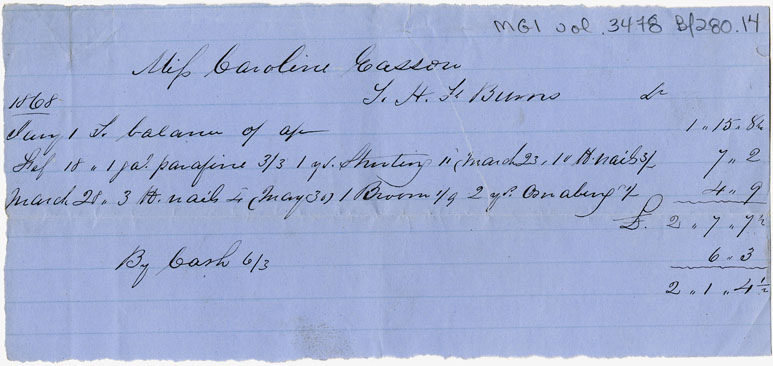 MG1 vol. 3478 B/280.14
Miss Caroline Casson
T. H. F. Burns Dr
1868
Jany 1 To balance of a/c 1 " 15 " 8½
Feb 18 " 1 gal. parafine 3/3 1 yd. Shirting 11 (March 23, 1 lb nails 3/ 7 " 2
March 28 " 3 lb. nails (May 30) 1 Broom 1/9 2 yds. Osnaburg 4 " 9
£. 2 " 7 " 7½
By Cash 6/3 6 " 3
2 " 1 " 4½